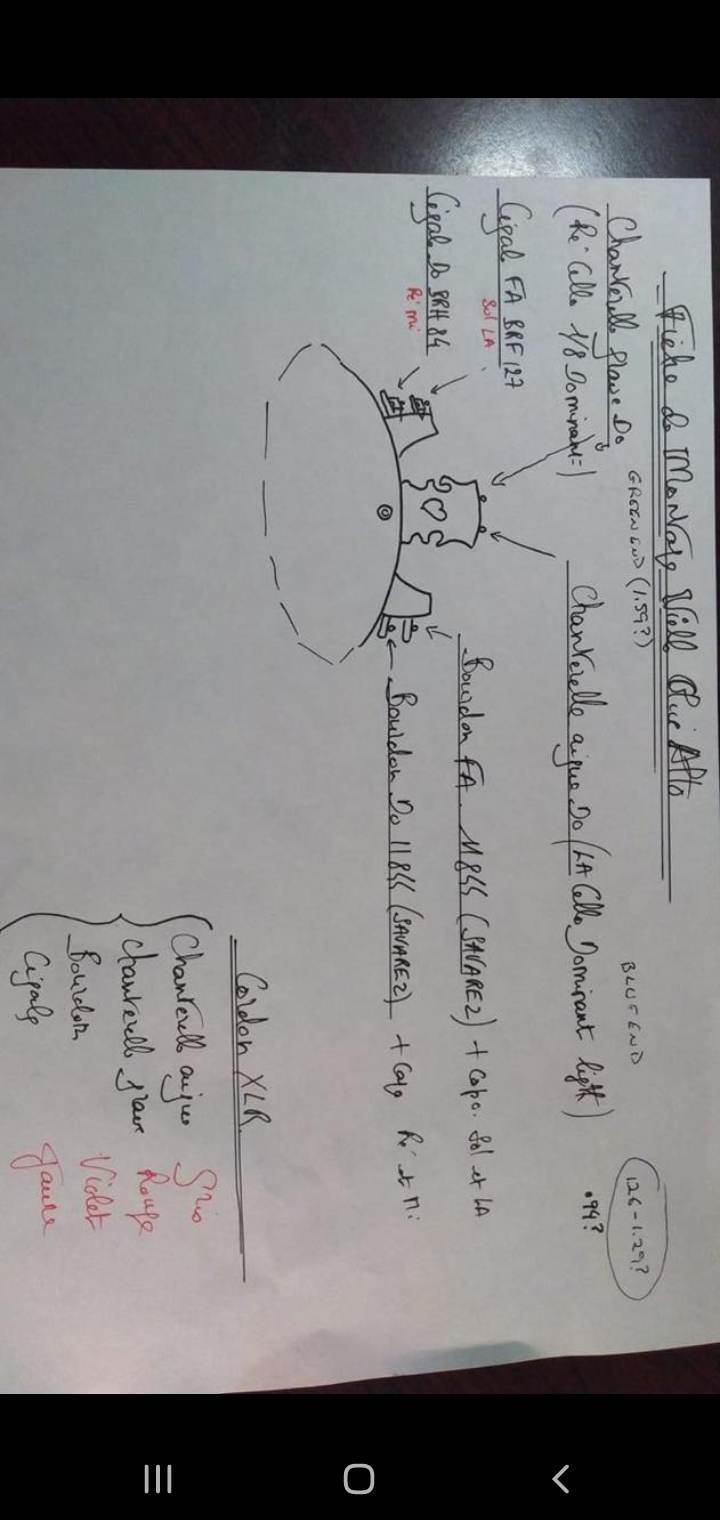 Fiche de Montage Vielle Alto
GREEN END (1.59?)
BLUE END
126-1.29?
.94?
Chanterelle grave Do
(Ré Cello 1/8 Dominant)
Chanterelle aigue Do (LA Cello Dominant light)
Cigale FA BRF 127
Sol LA
Cigale Do BRH 84
Ré mi
Bourdon FA 11844 (SAVAREZ) + Capo. Sol et LA
Bourdon Do (SAVAREZ) + Capo Ré et Mi
Cordon XLR
Chanterelle aigue Gris
Chanterelle grave Rouge
Bourdon Violet
Cigale Jaune